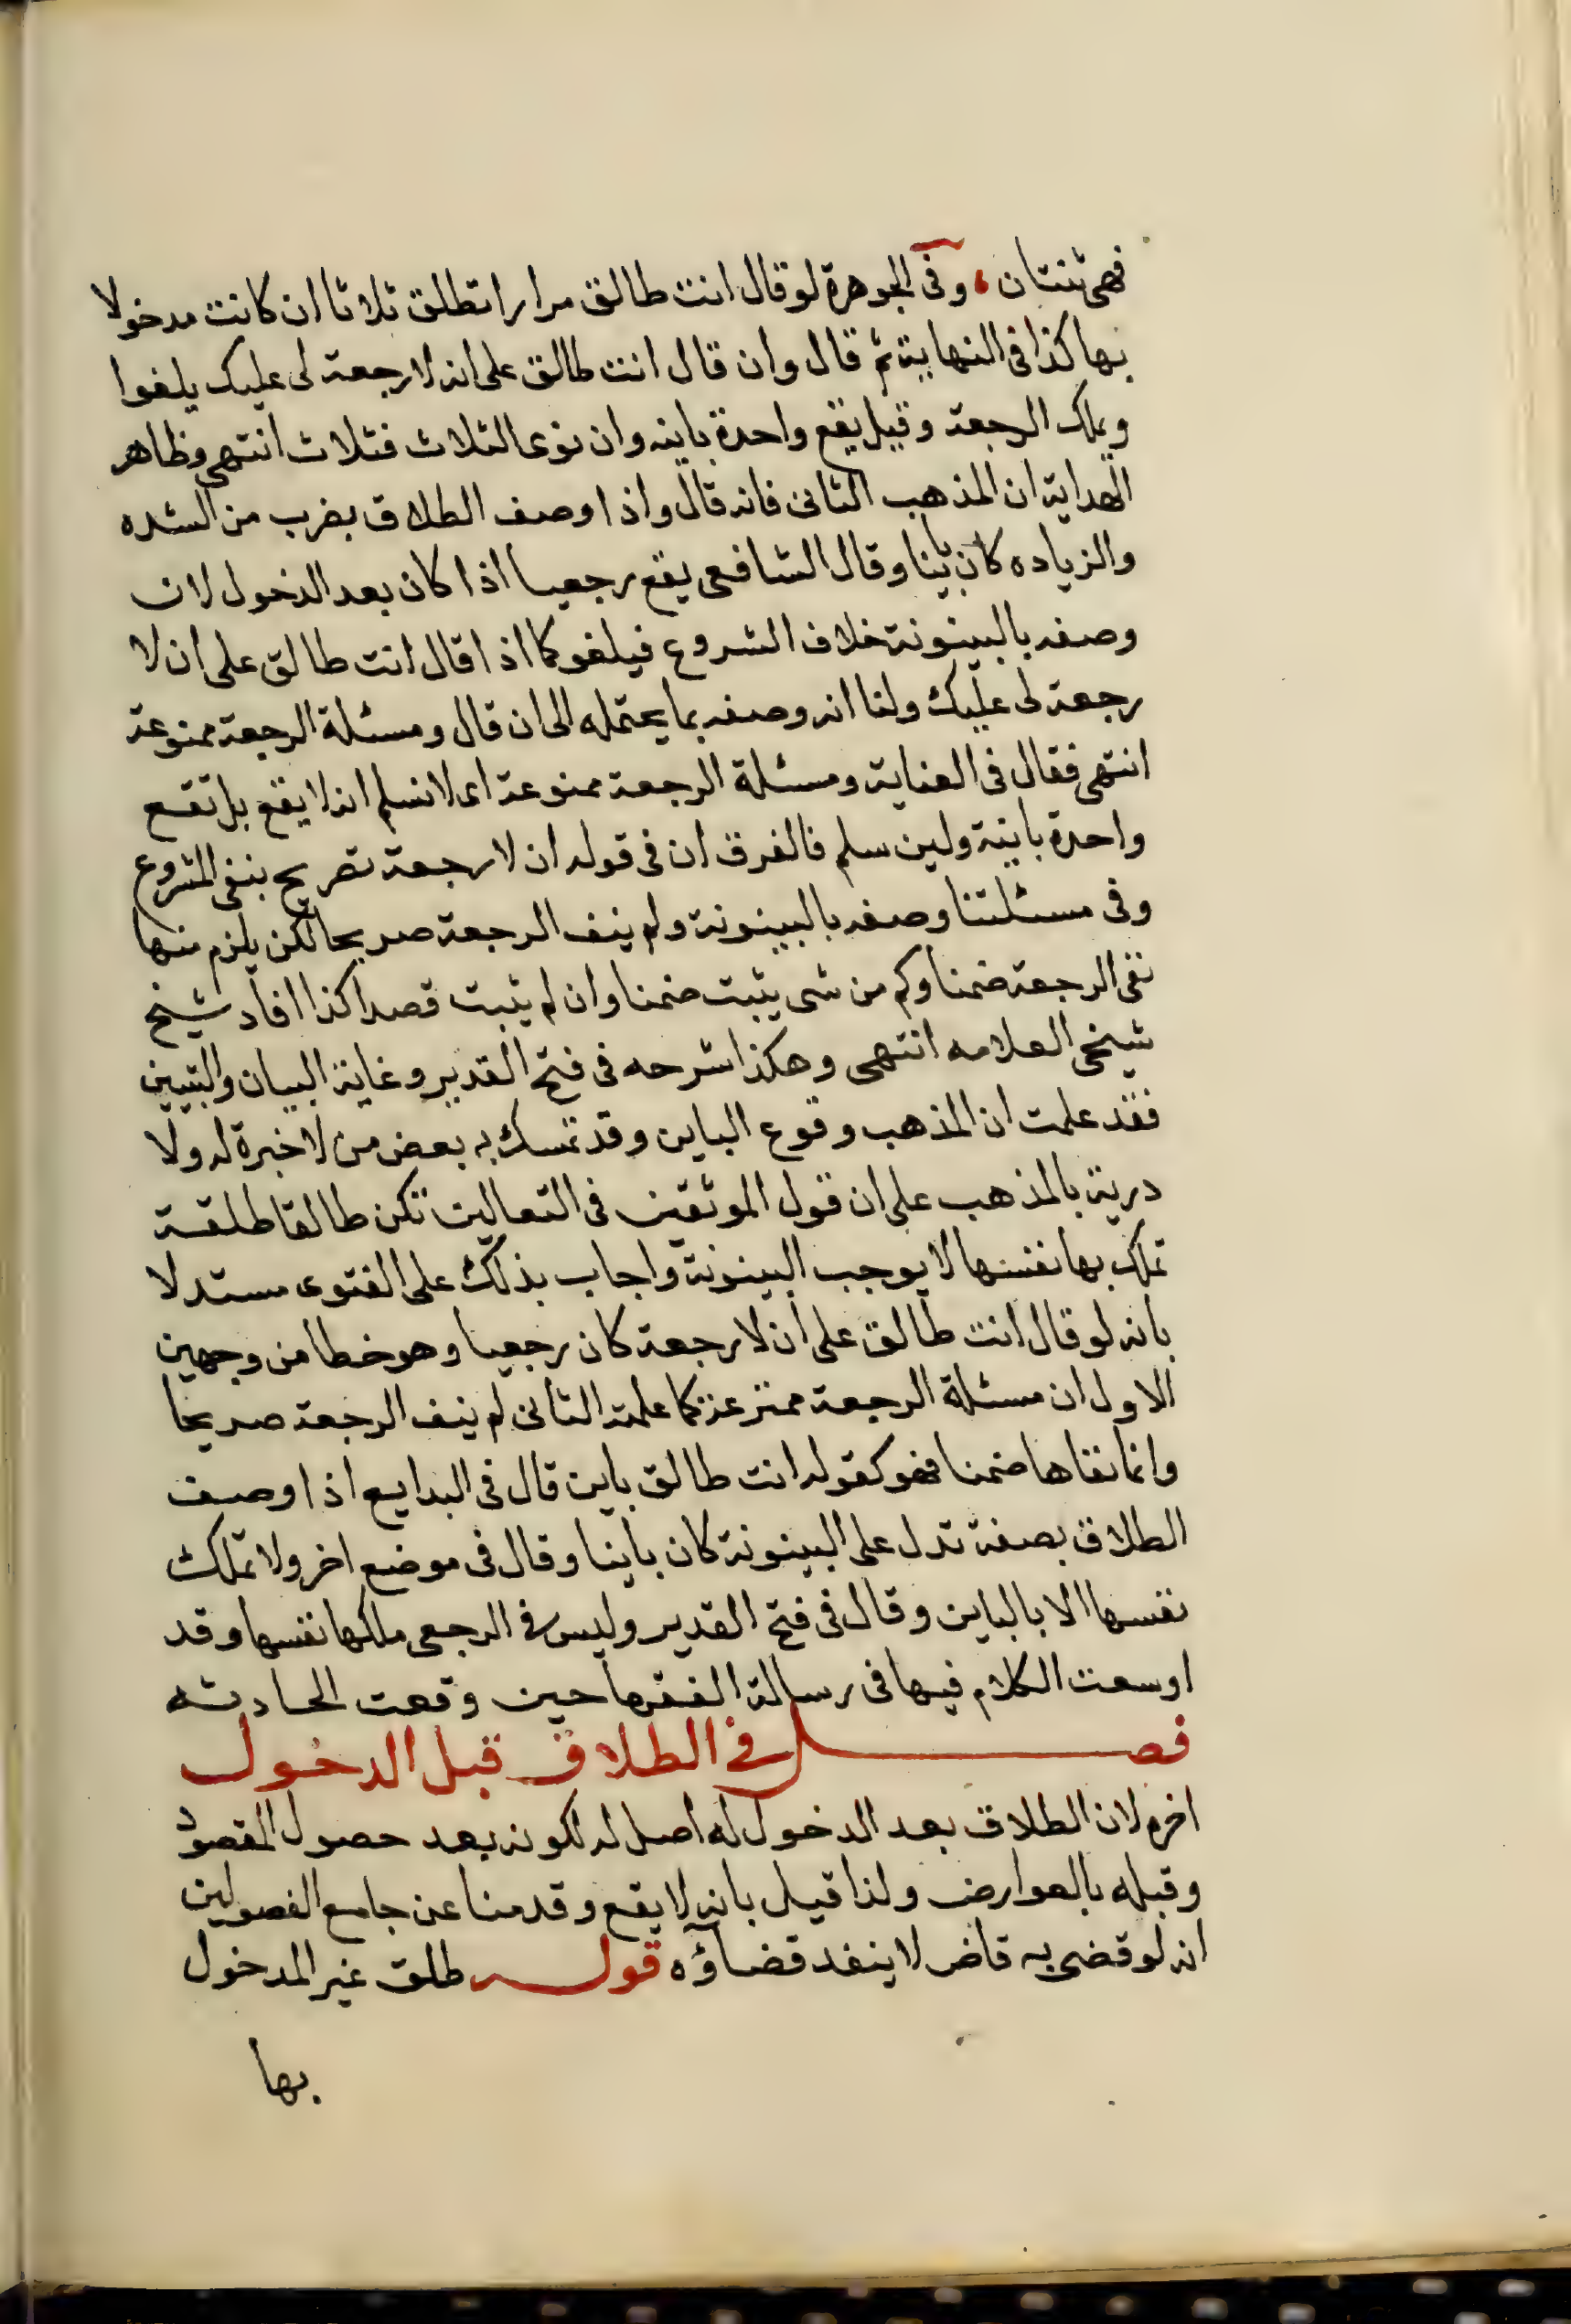 فهى ثنتان، وفى الجوهرة لو قال انت طالق مرارا تطلق ثلاثا ان كانت مدخولا
بها كذا فى النهاية ثم قال وان قال انت طالق على انه لا رجعة لى عليك يلغوا
ويملك الرجعة وقيل يقع واحدة باينه وان نوى الثلاث فثلاث انتهى وظاهر
الهداية ان المذهب الثانى فانه قال واذا وصف الطلاق بضرب من الشده
والزياده كان باينا وقال الشافعى يقع رجعيا اذا كان بعد الدخول لان
وصفه بالبينونة خلاف الشروع فيلغو كما اذا قال انت طالق على ان لا
رجعة لى عليك ولنا انه وصفه بما يحتمله الى ان قال ومسئلة الرجعة ممنوعة
انتهى فقال فى العناية ومسئلة الرجعة ممنوعة اى لا نسلم انه لا يقع بل تقع
واحدة باينة ولين سلم فالفرق ان فى قوله ان لا رجعة تصريح بنفى المشروع
وفى مسئلتنا وصفه بالبينونة ولم ينف الرجعة صريحا لكن يلزم منها
نفى الرجعة ضمنا وكم من شى يثبت ضمنا وان لم يثبت قصدا كذا افاد شيخ
شيخى العلامه انتهى وهكذا شرحه فى فتح القدير وغاية البيان والتبيين
فقد علمت ان المذهب وقوع الباين وقد تمسك به بعض من لا خبرة له ولا
درية بالمذهب على ان قول الموثقين فى التعاليق تكن طالقا طلقة
تملك بها نفسها لا يوجب البينونة واجاب بذلك على الفتوى مستدلا
بانه لو قال انت طالق على ان لا رجعة كان رجعيا وهو خطا من وجهين
الاول ان مسئلة الرجعة ممنوعة كما علمته الثانى لم ينف الرجعة صريحا
وانما نفاها ضمنا فهو كقوله انت طالق باين قال فى البدايع اذا وصف
الطلاق بصفة تدل على البينونة كان باينا وقال فى موضع اخر ولا تملك
نفسها الا بالباين وقال فى فتح القدير وليس فى الرجعى ملكها نفسها وقد
اوسعت الكلام فيها فى رسالة الفقها حين وقعت الحادثه
فصل فى الطلاق قبل الدخول
اخره لان الطلاق بعد الدخول له اصل له لكونه بعد حصول المقصود
وقبله بالعوارض ولذا قيل بانه لا يقع وقدمنا عن جامع الفصولين
انه لو قضى به قاض لا ينفد قضاؤه قوله طلق غير المدخول
بها